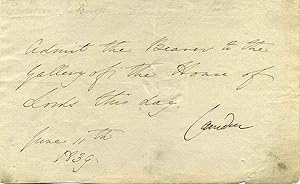 Admit the Bearer to the
Gallery of the House of
Lords this day.
Camden
June 11th
1839.